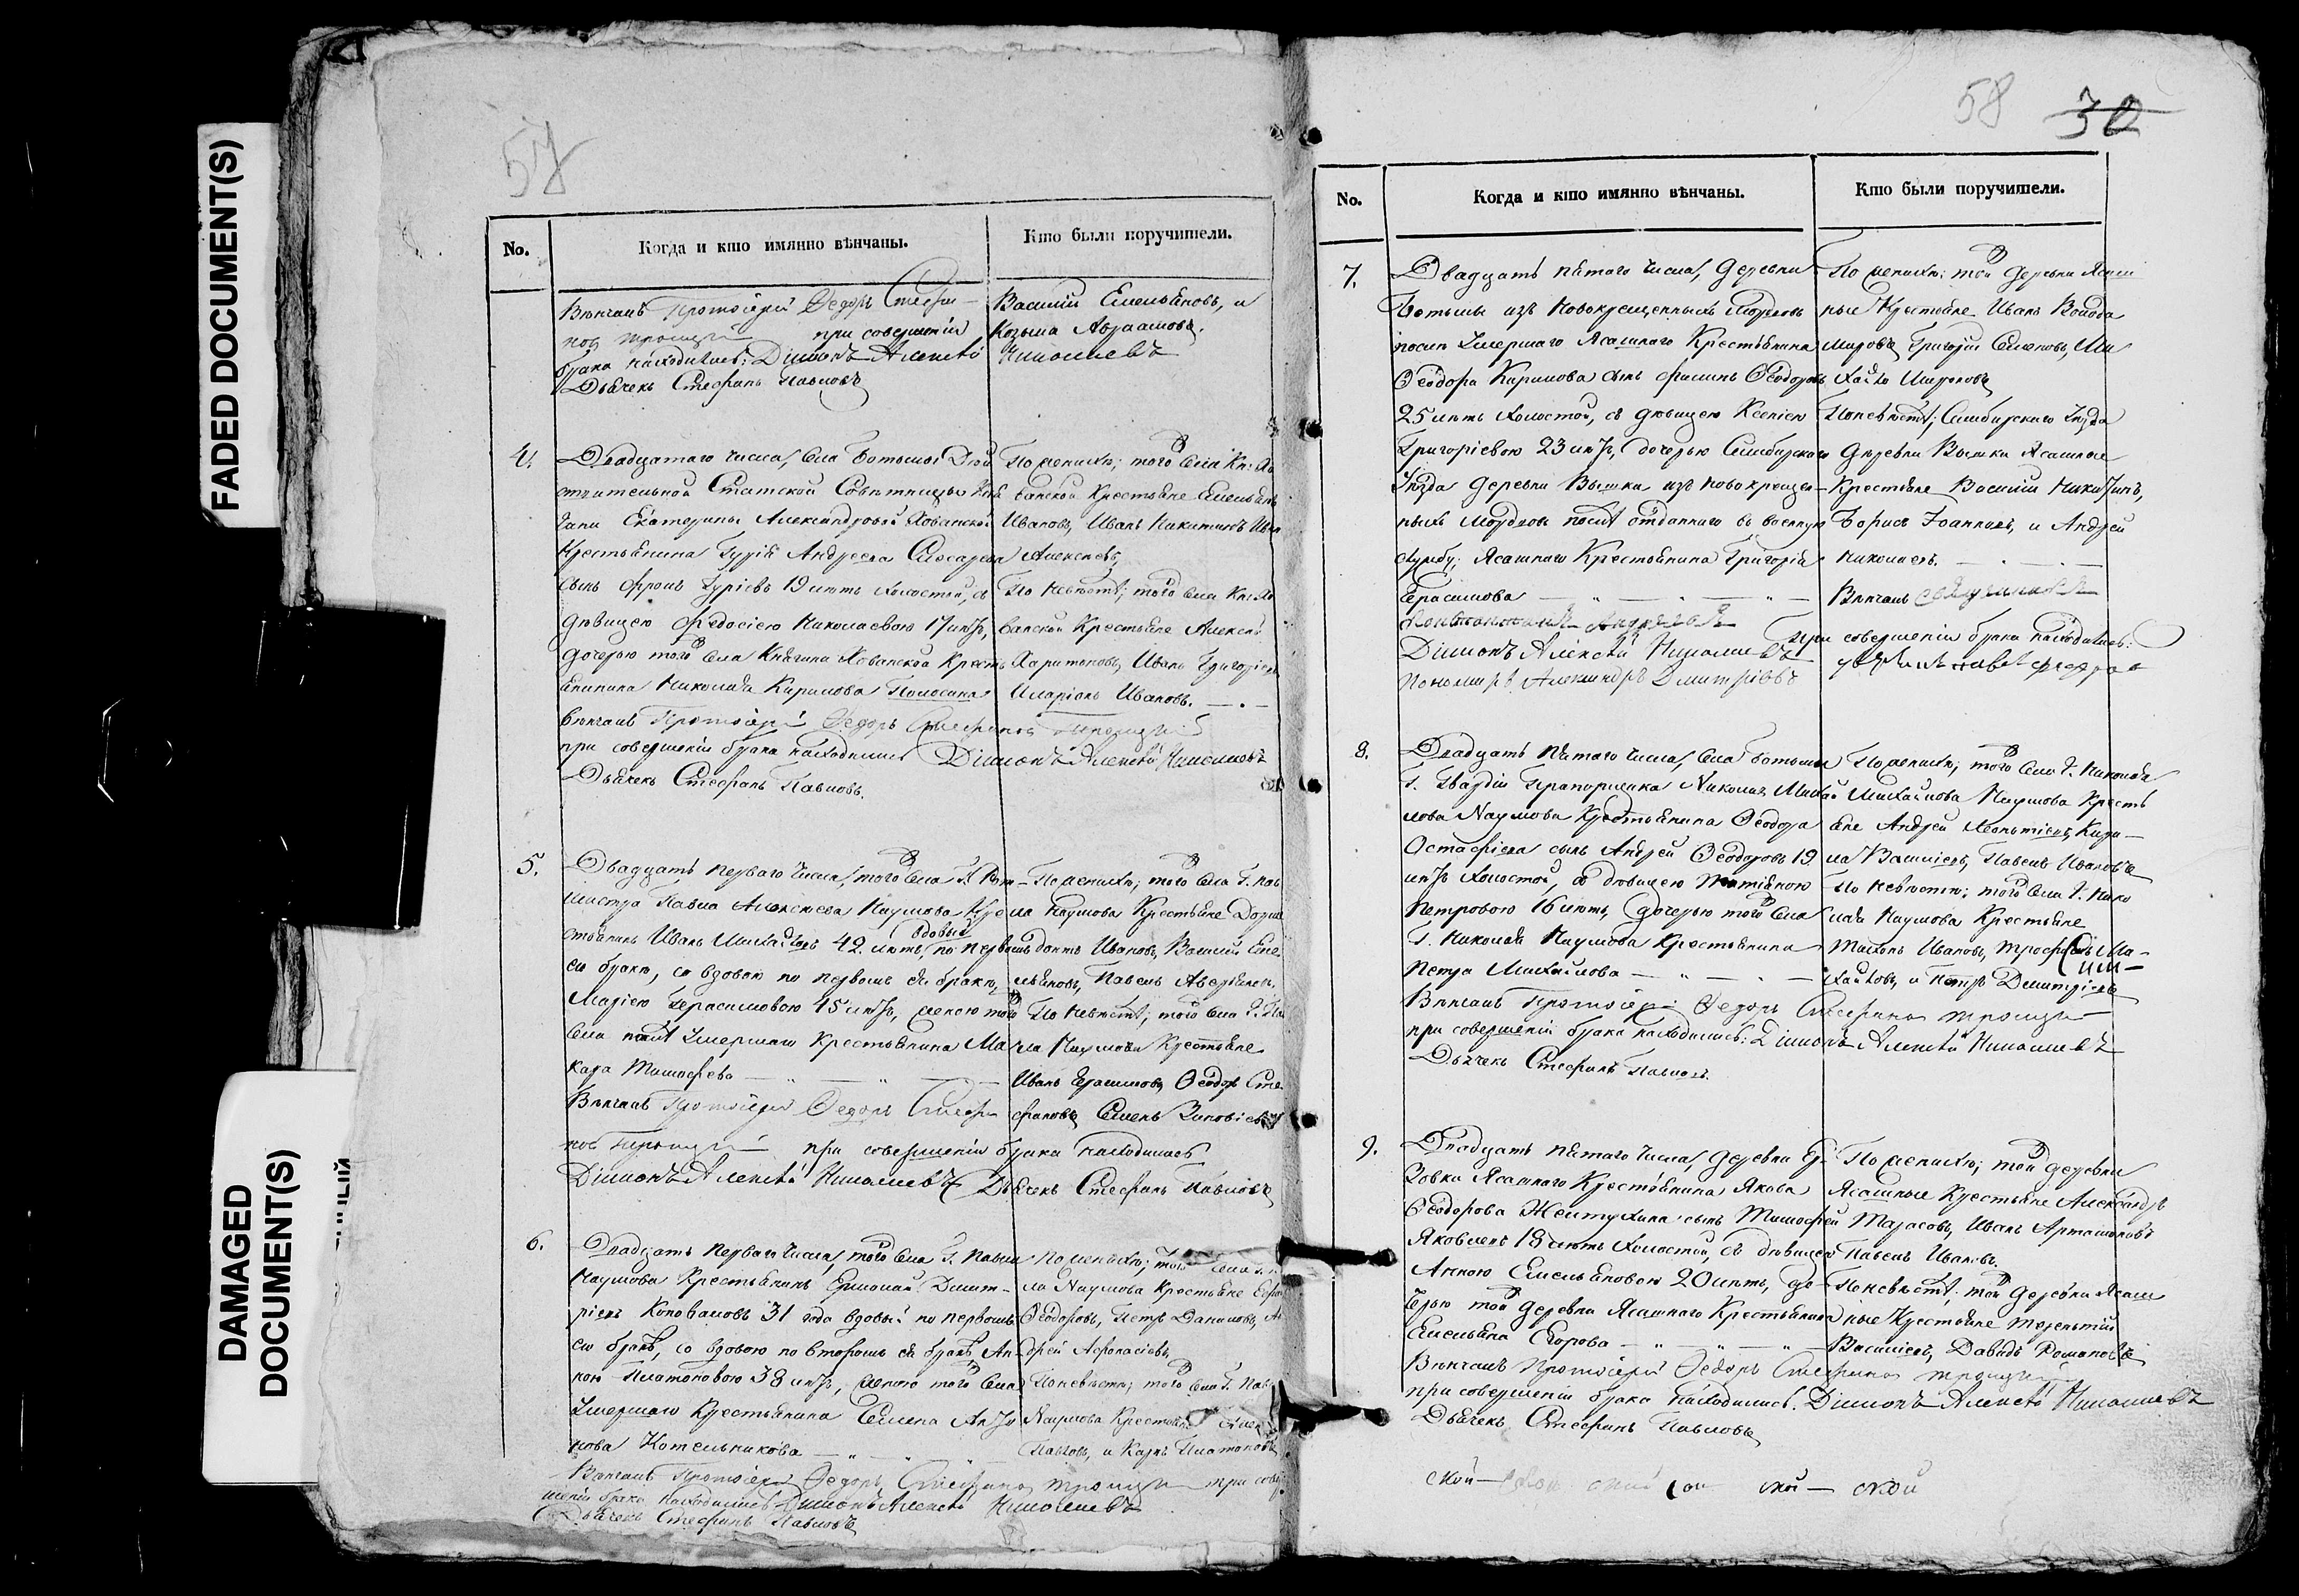 FADED DOCUMENT(S)
DAMAGED
DOCUMENT(S)
57
No.
Когда и кто имянно вѣнчаны.
Кто были поручители.
Вѣнчалъ Протоіерей Ѳедоръ Стефа-
новъ Троицкій при совершеніи
брака находились: Діаконъ Алексѣй Николаевъ
Дьячекъ Стефанъ Павловъ
Василій Емельяновъ, и
Козьма Авраамовъ.
4.
Двадцатаго числа, села Ботьмы Дѣй
ствительной Статской Совѣтницы Кня
гини Екатерины Александровой Хованской
Крестьянина Гурія Андреева Слесарева
сынъ Фролъ Гуріевъ 19 лѣтъ холостой, съ
дѣвицею Ѳедосіею Николаевою 17 лѣтъ,
дочерью того села Княгини Хованской Кресть
янина Николая Кирилова
вѣнчалъ Протоіерей Ѳедоръ Стефановъ Троицкій
при совершеніи брака находились Діаконъ Алексѣй Николаевъ
Дьячекъ Стефанъ Павловъ.
По женихѣ; того села Кн: Хо
ванской Крестьяне Емельянъ
Ивановъ, Иванъ Никитинъ
Алексѣевъ,
По невѣстѣ; того села Кн: Хо
ванской Крестьяне Алексѣй
Харитоновъ, Иванъ Григорьевъ
Иларіонъ Ивановъ.
5.
Двадцать перваго числа, того села Г. Рот-
мистра Павла Алексѣева Наумова Кре
стьянинъ Иванъ Михайловъ 42 лѣтъ, вдовый по первомъ
ево бракѣ, со вдовою по первомъ ея бракѣ,
Маріею Герасимовою 45 лѣтъ, женою того
села умершаго Крестьянина Ма
кара Тимофѣева
Вѣнчалъ Протоіерей Ѳедоръ Стефа
новъ Троицкій при совершеніи брака находились
Діаконъ Алексѣй Николаевъ Дьячекъ Стефанъ Павловъ
По женихѣ; того села Г. Пав
ла Наумова Крестьяне
Ивановъ, Василій Еме
льяновъ, Павелъ Аверьяновъ,
По невѣстѣ; того села Г. Па
вла Наумова Крестьяне
Иванъ Герасимовъ, Ѳеодоръ Сте
фановъ, Семенъ Зиновіевъ
6.
Двадцать перваго числа, того села Г. Павла
Наумова Крестьянинъ Ермолай Дмит-
ріевъ Коноваловъ 31 года вдовый по первомъ
ево бракѣ, со вдовою по второмъ ея бракѣ Ан
ною Платоновою 38 лѣтъ, женою того села
умершаго Крестьянина Семена Анто
нова Котельникова
Вѣнчалъ Протоіерей Ѳедоръ Стефановъ Троицкій при совер
шеніи брака находились Діаконъ Алексѣй Николаевъ
Дьячекъ Стефанъ Павловъ
По женихѣ; того села Г. Пав
ла Наумова Крестьяне
Ѳеодоровъ, Петръ Даниловъ, Ан
дрей Афонасьевъ,
По невѣстѣ; того села Г. Павла
Наумова Крестьяне
Павловъ, и Карпъ Платоновъ
58 30
No.
Когда и кто имянно вѣнчаны.
Кто были поручители.
7.
Двадцать пятаго числа, деревни
Ботьмы изъ новокрещенныхъ Мордвовъ
умершаго Ясашнаго Крестьянина
Ѳеодора Карпова сынъ Ѳеодоровъ
25 лѣтъ холостой, съ дѣвицею Ксеніею
Григоріевою 23 лѣтъ, дочерью Симбирскаго
Уѣзда деревни Вышки изъ новокрещен-
ныхъ Мордвовъ отданнаго въ военную
службу; Ясашнаго Крестьянина Григорія
Герасимова
Константинъ Андреевъ
Діаконъ Алексѣй Николаевъ
Пономарь Александръ Дмитріевъ
По женихѣ; той деревни Ясаш
ные Крестьяне Иванъ
Григорій Семеновъ, Ми
хайло Мироновъ
По невѣстѣ; Симбирскаго Уѣзда
деревни Вышки Ясашные
Крестьяне Василій Никитинъ,
Борисъ Іоанновъ, и Андрей
Николаевъ.
Вѣнчалъ священникъ
при совершеніи брака находились:
8.
Двадцать пятаго числа, села Ботьмы
Г. Гвардіи Прапорщика Николая Михай
лова Наумова Крестьянина Ѳеодора
Остафіева сынъ Андрей Ѳеодоровъ 19
лѣтъ холостой, съ дѣвицею Татіаною
Петровою 16 лѣтъ, дочерью того села
Г. Николая Наумова Крестьянина
Петра Михайлова
Вѣнчалъ Протоіерей Ѳедоръ Стефановъ Троицкій
при совершеніи брака находились: Діаконъ Алексѣй Николаевъ
Дьячекъ Стефанъ Павловъ.
По женихѣ; того села Г. Николая
Михайлова Наумова Кресть
яне Андрей Леонтіевъ, Кири-
ла Васильевъ, Павелъ Ивановъ
По невѣстѣ; того села Г. Нико
лая Наумова Крестьяне
Тихонъ Ивановъ, Трофимъ Ми-
хайловъ, и Петръ Дмитріевъ
9.
Двадцать пятаго числа, деревни Ер-
зовки Ясашнаго Крестьянина Якова
Ѳеодорова Желтухина сынъ Тимофей
Яковлевъ 18 лѣтъ холостой, съ дѣвицею
Анною Емельяновою 20 лѣтъ, до-
черью той деревни Ясашнаго Крестьянина
Емельяна Егорова
Вѣнчалъ Протоіерей Ѳедоръ Стефановъ Троицкій
при совершеніи брака находились. Діаконъ Алексѣй Николаевъ
Дьячекъ Стефанъ Павловъ
По женихѣ; той деревни
Ясашные Крестьяне Александръ
Тарасовъ, Иванъ Артамоновъ
Павелъ Ивановъ.
По невѣстѣ; той деревни Ясаш
ные Крестьяне Терентій
Васильевъ, Давыдъ Романовъ
ской